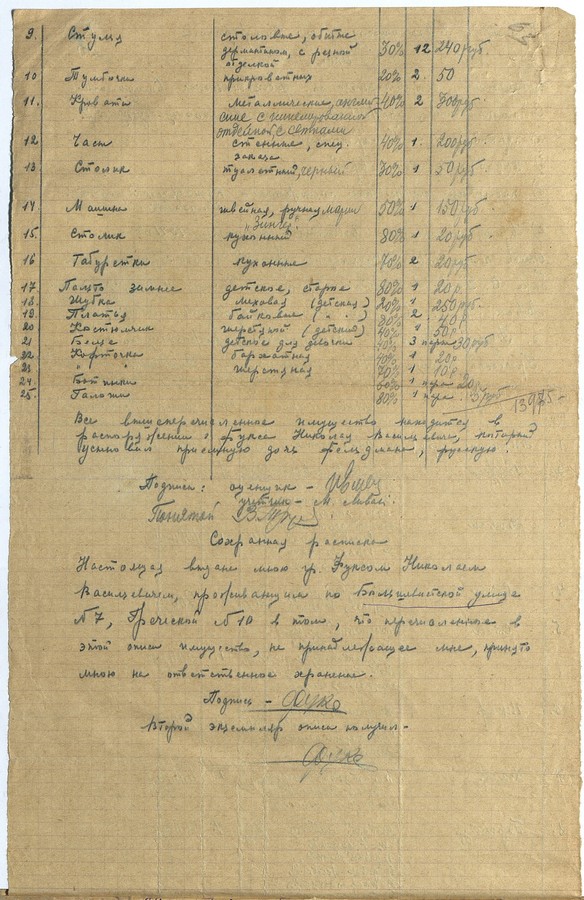 9. Стулья столовые, обитые
дермантином, с резной 30% 12 240 руб.
отделкой
10 Тумбочки прикроватных 20% 2 50
11. Кровати металлические, англий- 40% 2 300 руб.
ские с никелированной
отделкой, с сетками
12 Часы стенные, спец. 40% 1 200 руб.
заказа
13. Столик туалетный, черный 30% 1 50 руб.
14 Машина швейная, ручная марки 50% 1 150 руб
"Зингер"
15. Столик кухонный 80% 1 20 руб.
16 Табуретки кухонные 70% 2 20 руб.
17 Пальто зимнее детское, старое 80% 1 20 р.
18. Шубка меховая (детская) 20% 1 250 руб.
19 Платья байковые ( " ) 30% 2 40 р.
20 Костюмчик шерстяной (детский) 40% 1 50 р.
21 Белье детское для девочки 40% 3 пары 30 руб
22 Кофточка бархатная 40% 1 20 р
23 " шерстяная 70% 1 10 р.
24. Ботинки 60% 1 пара 20 р.
25. Галоши 80% 1 пара. 5 руб
1395-
Все вышеперечисленное имущество находится в
распоряжении Фукса Николая Васильевича, который
усыновил приемную дочь Фельдмана, русскую.
Подписи: оценщик -
учетчик - М.
Понятой
Сохранная расписка
Настоящая выдана мною гр. Фуксом Николаем
Васильевичем, проживающим по улице
N 7, Греческой N 10 в том, что перечисленное в
этой описи имущество, не принадлежащее мне, принято
мною на ответственное хранение.
Подпись - Фукс
Второй экземпляр описи получил -
Фукс